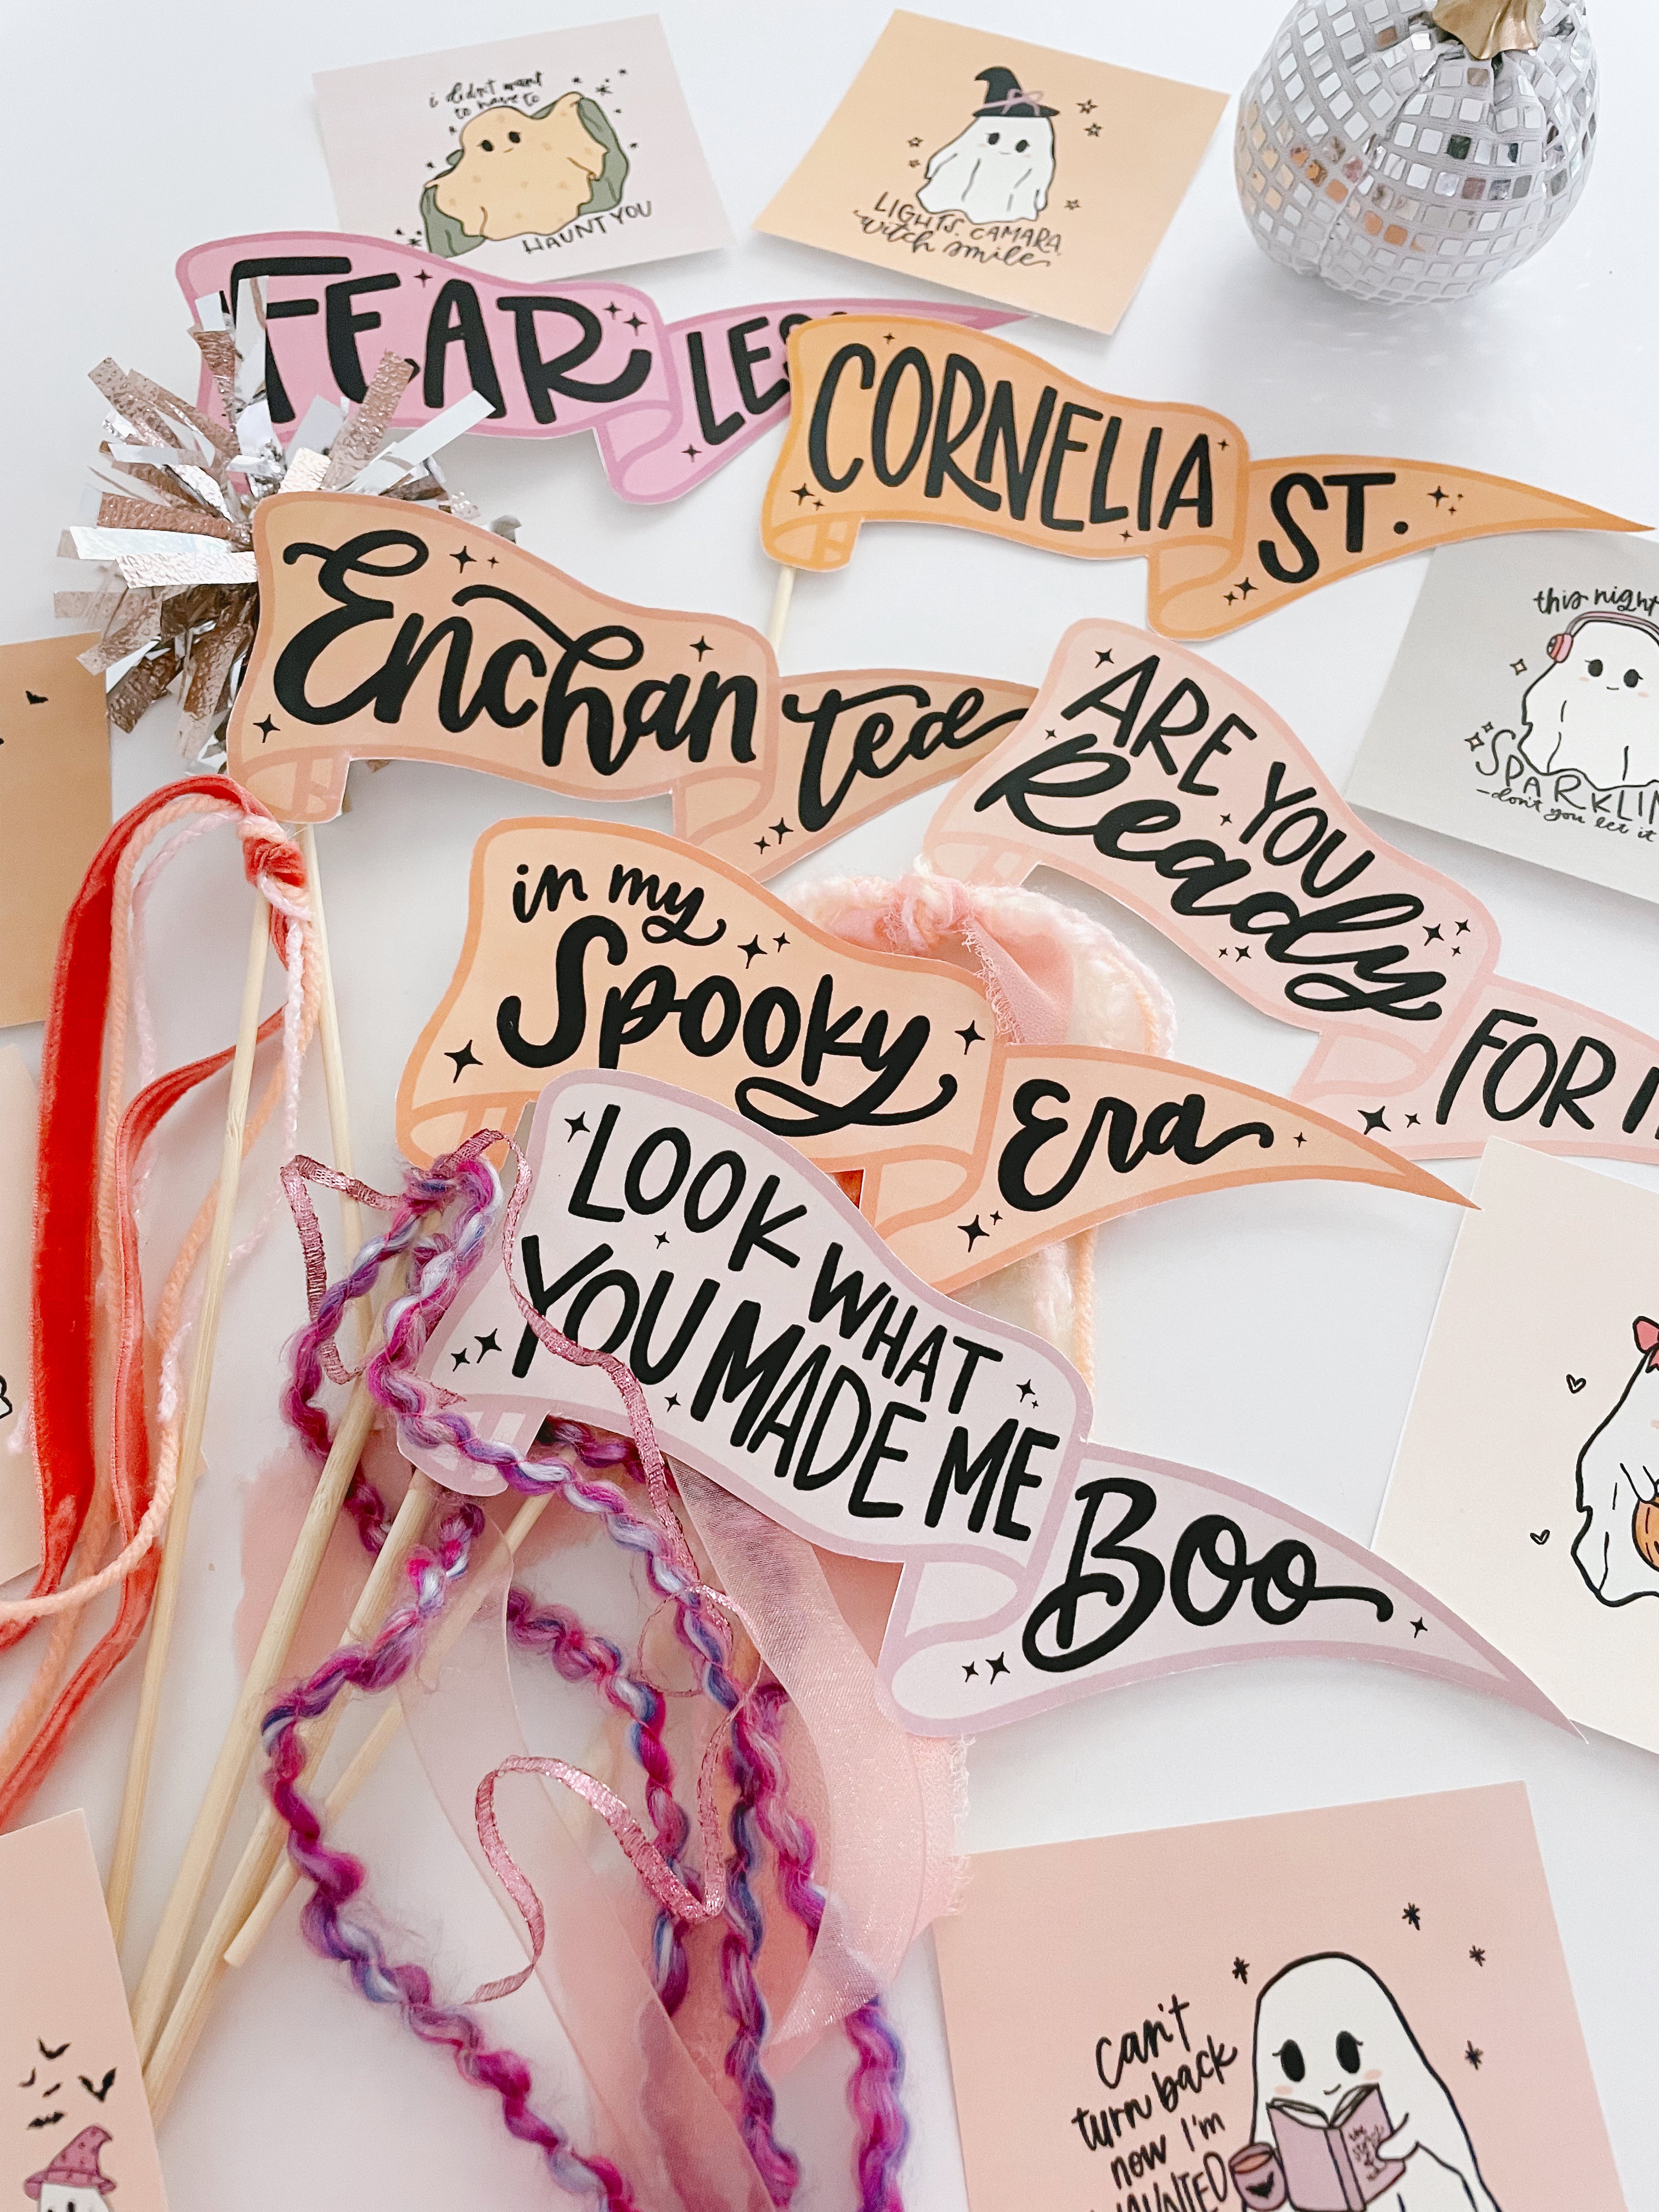 i didn't want
to have to
HAUNT YOU
LIGHTS, CAMARA,
witch smile
FEAR LESS
CORNELIA ST.
Enchan ted
this night
SPARKLIN
-don't you let it
ARE YOU
Ready
FOR I
in my
Spooky Era
LOOK WHAT
YOU MADE ME
Boo
can't
turn back
now I'm
HAUNTED